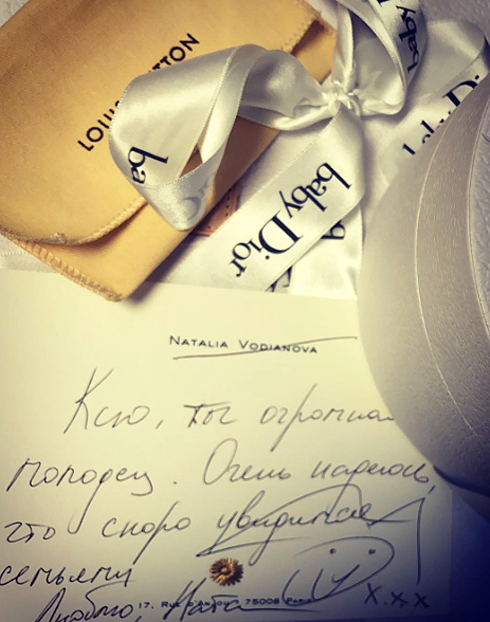 LOUIS VUITTON
baby
ba
baby Dior
NATALIA VODIANOVA
Ксю, ты огромная
молодец. Очень надеюсь,
что скоро увидимся
семьями
Люблю, Ната
17, RUE D'ANJOU 75008 PARIS
x.x.x